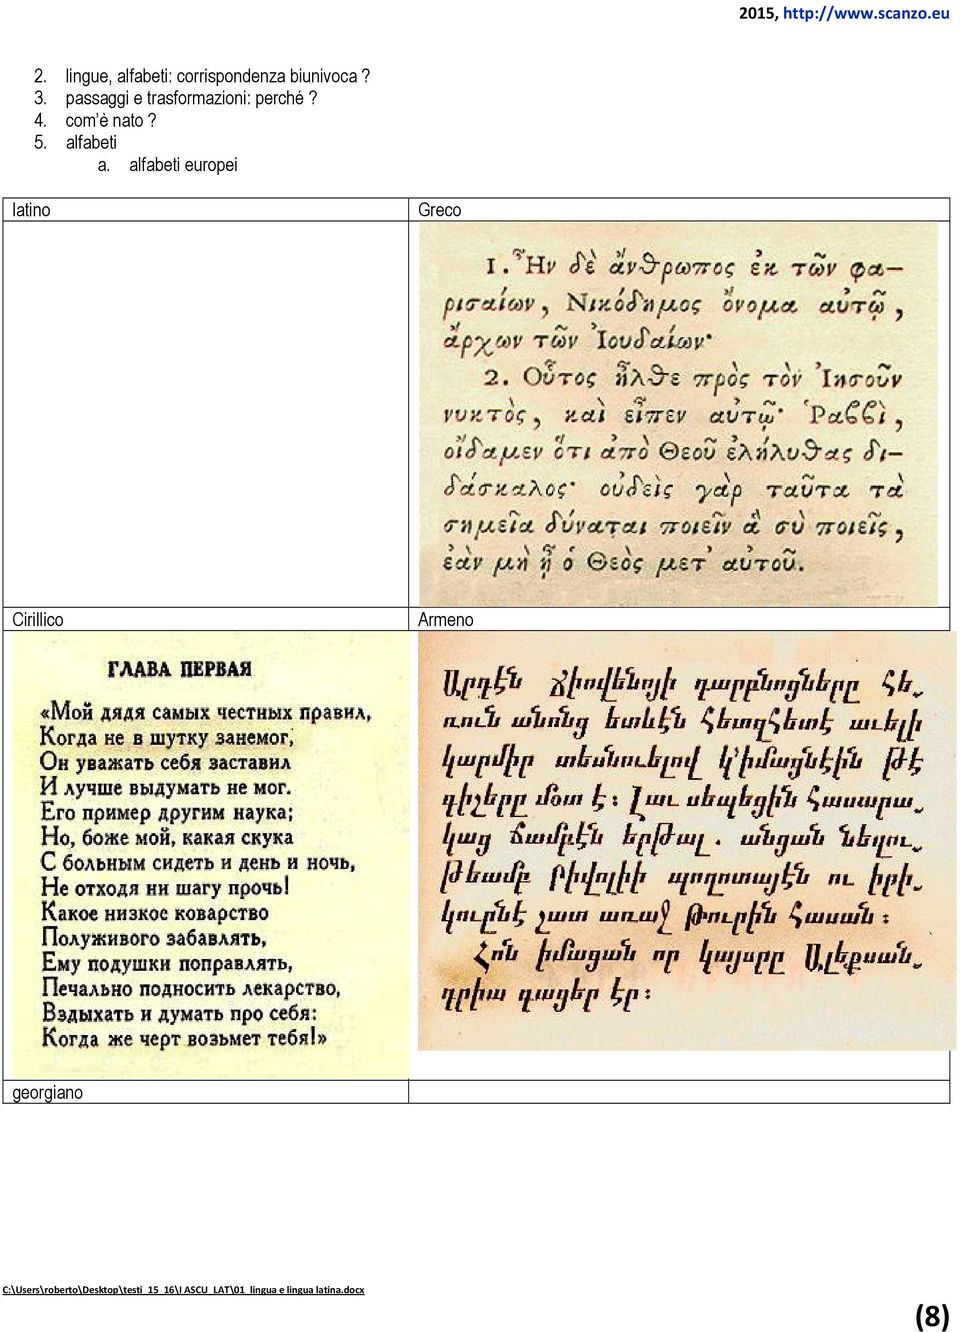 2015, http://www.scanzo.eu
2. lingue, alfabeti: corrispondenza biunivoca ?
3. passaggi e trasformazioni: perché ?
4. com’è nato ?
5. alfabeti
a. alfabeti europei
latino
Greco
1. Ἦν δὲ ἄνθρωπος ἐκ τῶν φα-
ρισαίων, Νικόδημος ὄνομα αὐτῷ,
ἄρχων τῶν Ἰουδαίων·
2. Οὗτος ἦλθε πρὸς τὸν Ἰησοῦν
νυκτὸς, καὶ εἶπεν αὐτῷ· Ῥαϐϐὶ,
οἴδαμεν ὅτι ἀπὸ Θεοῦ ἐλήλυθας δι-
δάσκαλος· οὐδεὶς γὰρ ταῦτα τὰ
σημεῖα δύναται ποιεῖν ἃ σὺ ποιεῖς,
ἐὰν μὴ ᾖ ὁ Θεὸς μετ’ αὐτοῦ.
Cirillico
Armeno
ГЛАВА ПЕРВАЯ
«Мой дядя самых честных правил,
Когда не в шутку занемог,
Он уважать себя заставил
И лучше выдумать не мог.
Его пример другим наука;
Но, боже мой, какая скука
С больным сидеть и день и ночь,
Не отходя ни шагу прочь!
Какое низкое коварство
Полуживого забавлять,
Ему подушки поправлять,
Печально подносить лекарство,
Вздыхать и думать про себя:
Когда же черт возьмет тебя!»
Արդէն ճիովենոյի դարբնոցները հե֊
ռուն անոնց ետևէն հետզհետէ աւելի
կարմիր տեսնուելով կ՚իմացնէին թէ
գիշերը մօտ է։ Լաւ սեպեցին հասարա֊
կաց ճամբէն երթալ. անցան նեղու֊
թեամբ րիվոլիի պողոտայէն ու իրի֊
կուրնէ շատ առաջ թուրին հասան։
Հոն իմացան որ կայսրը Ալեքսան֊
դրիա գացեր էր։
georgiano
C:\Users\roberto\Desktop\testi_15_16\I ASCU_LAT\01_lingua e lingua latina.docx
(8)